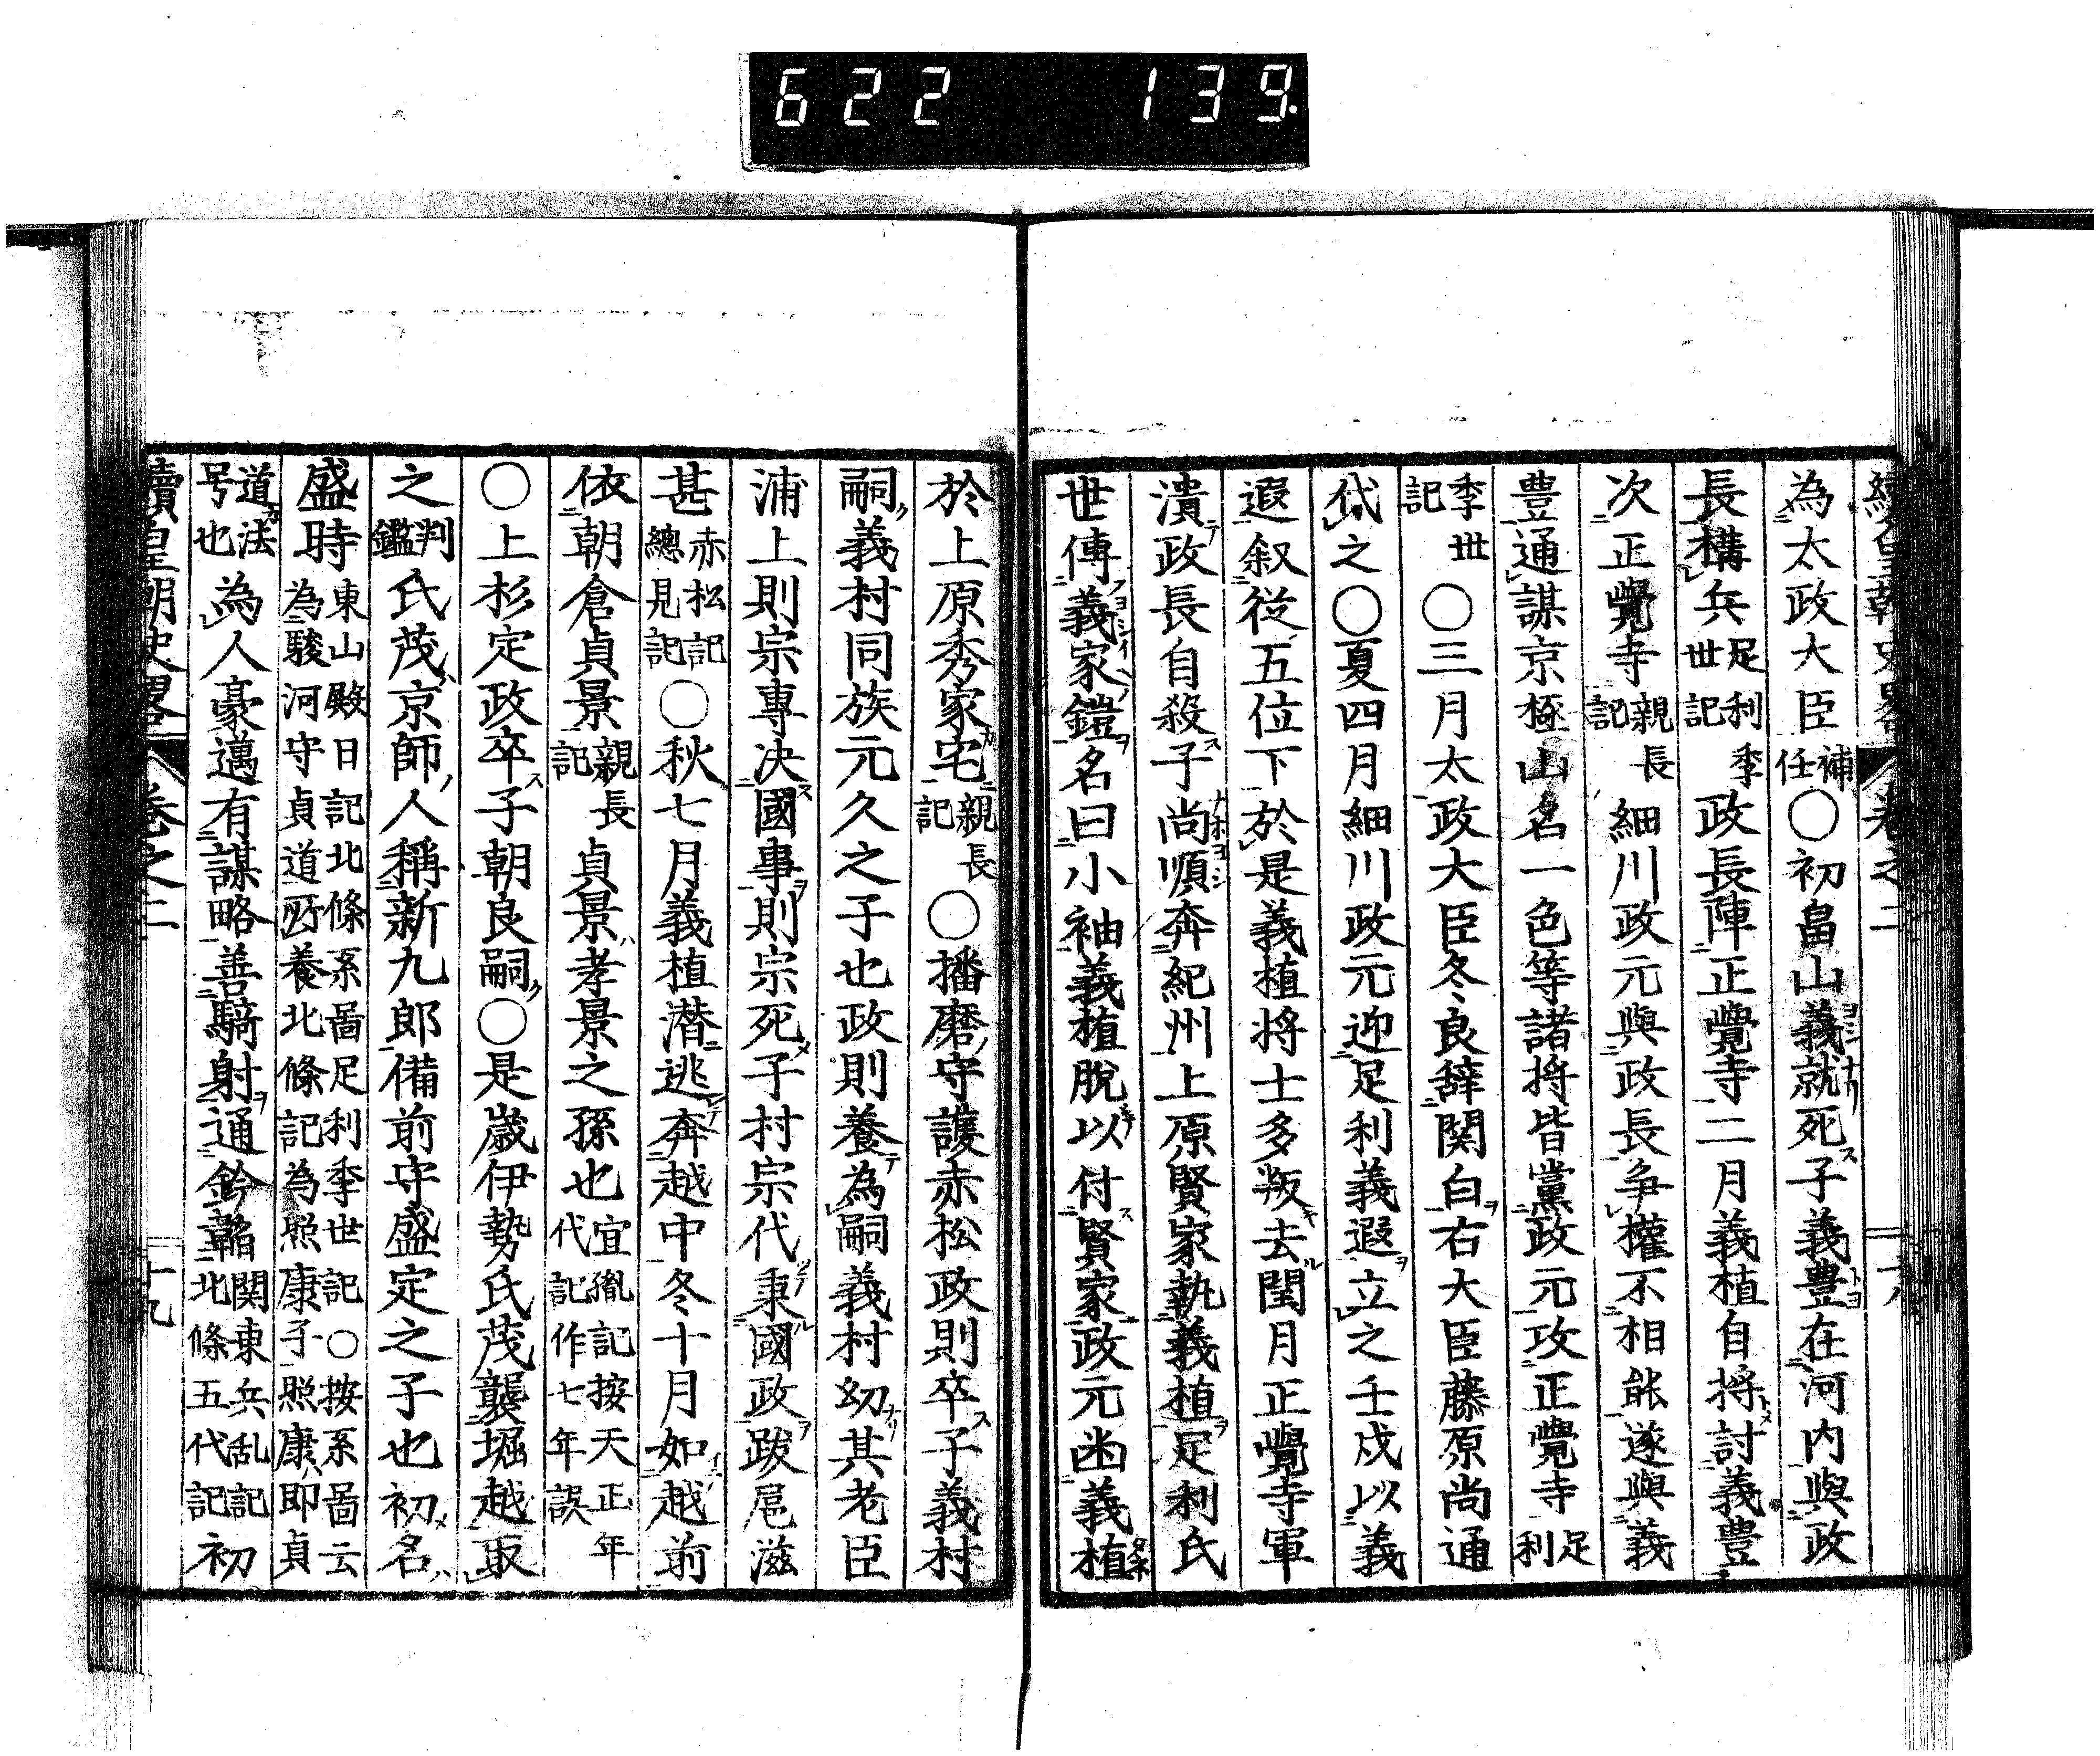 622 139.
續皇朝史略 卷之二
為太政大臣補任〇初畠山義就死子義豊在河内與政
長構兵足利季世記政長陣正覺寺二月義植自将討義豊
次正覺寺親長記細川政元與政長争權不相能遂與義
豊通謀京極山名一色等諸将皆黨政元攻正覺寺足利
季世記〇三月太政大臣冬良辞関白右大臣藤原尚通
代之〇夏四月細川政元迎足利義遐立之壬戌以義
遐叙従五位下於是義植将士多叛去閏月正覺寺軍
潰政長自殺子尚順奔紀州上原賢家執義植足利氏
世傳義家鎧名曰小袖義植脱以付賢家政元凾義植
於上原秀家宅親長記〇播磨守護赤松政則卒子義村
嗣義村同族元久之子也政則養為嗣義村幼其老臣
浦上則宗專決國事則宗死子村宗代秉國政跋扈滋
甚赤松記總見記〇秋七月義植潜逃奔越中冬十月如越前
依朝倉貞景親長記貞景孝景之孫也宜胤記按天正年代記作七年誤
〇上杉定政卒子朝良嗣〇是歳伊勢氏茂襲堀越取
之判鑑氏茂京師人稱新九郎備前守盛定之子也初名
盛時東山殿日記北條系啚足利季世記〇按系啚云為駿河守貞道所養北條記為照康子照康即貞
道法号也為人豪邁有謀略善騎射通鈐韜関東兵乱記北條五代記初
續皇朝史畧 卷之二 十九